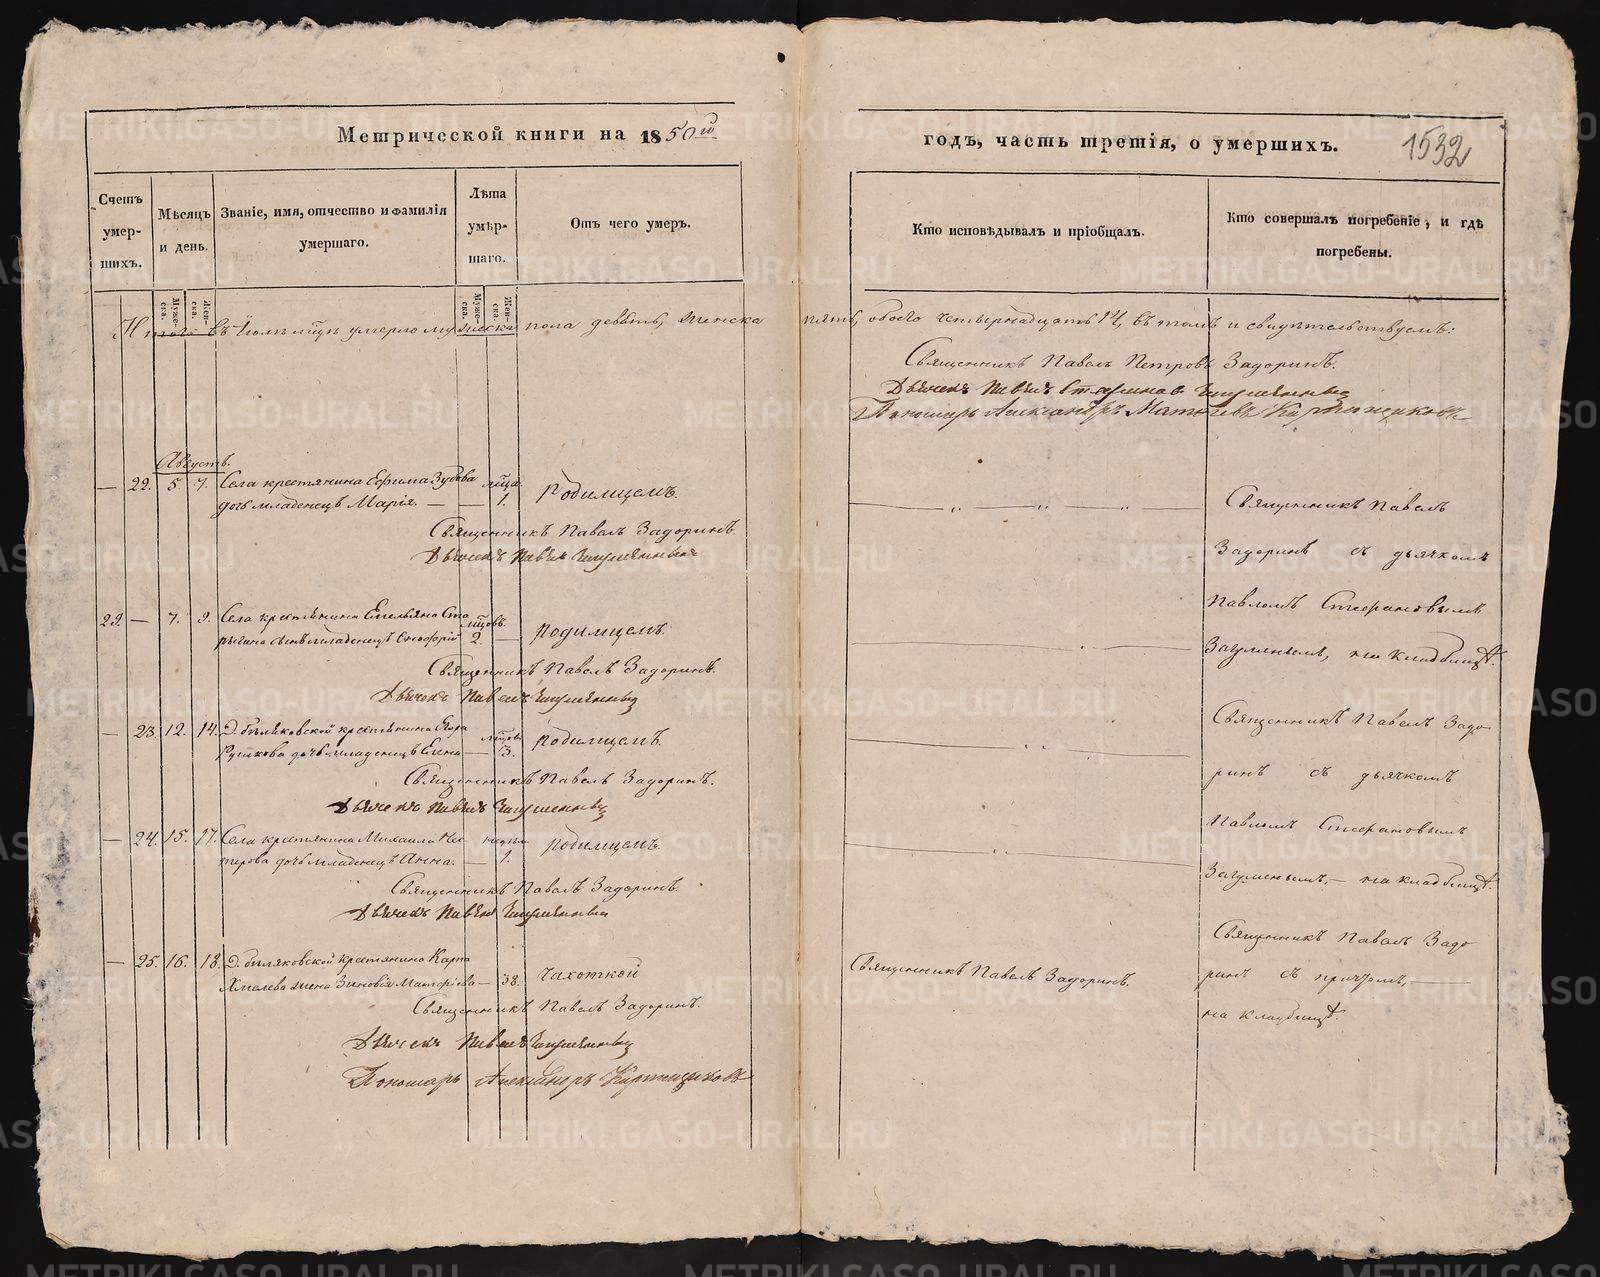 Метрической книги на 1850й
годъ, часть третія, о умершихъ.
1532
Счетъ умер-шихъ.
Мѣсяцъ и день.
Званіе, имя, отчество и фамилія умершаго.
Лѣта умѣр-шаго.
Отъ чего умеръ.
Кто исповѣдывалъ и пріобщалъ.
Кто совершалъ погребеніе, и гдѣ погребены.
Муже-ска.
Жен-ска.
Муже-ска.
Жен-ска.
Итого въ Іюлѣ мцѣ умерло мужеска пола девять, женска пять, обоего четырнадцать 14, въ томъ и свидѣтельствуемъ:
Священникъ Павелъ Петровъ Задоринъ.
Дьячекъ Павелъ Стефановъ
Пономарь Александръ
Августъ.
— 22. 5. 7. Села крестьянина Ефима Зубова мца.
дочь младенецъ Марія. — — 1. родимцемъ.
Священникъ Павелъ Задоринъ.
Дьячекъ Павелъ
Священникъ Павелъ
Задоринъ съ дьячкомъ
Павломъ Стефановымъ
на кладбищѣ.
29. — 7. 9. Села крестьянина Емельяна Ста мцовъ.
рыгина сынъ младенецъ 2 — родимцемъ.
Священникъ Павелъ Задоринъ.
Дьячекъ Павелъ
— 23. 12. 14. Д. Бѣляковской крестьянина Егора мцовъ
дочь младенецъ Елена — 3. родимцемъ.
Священникъ Павелъ Задоринъ.
Дьячекъ Павелъ
Священникъ Павелъ Задо
ринъ съ дьячкомъ
Павломъ Стефановымъ
— на кладбищѣ.
— 24. 15. 17. Села крестьянина Михаила Нес
терова дочь младенецъ Анна. — 1. родимцемъ.
Священникъ Павелъ Задоринъ.
Дьячекъ Павелъ
— 25. 16. 18. Д. Бѣляковской крестьянина Карпа
Хмелева жена Зиновія — 38. чахоткой
Священникъ Павелъ Задоринъ.
Дьячекъ Павелъ
Пономарь Александръ
Священникъ Павелъ Задоринъ.
Священникъ Павелъ Задо
ринъ съ причтомъ, —
на кладбищѣ.
METRIKI.GASO-URAL.RU